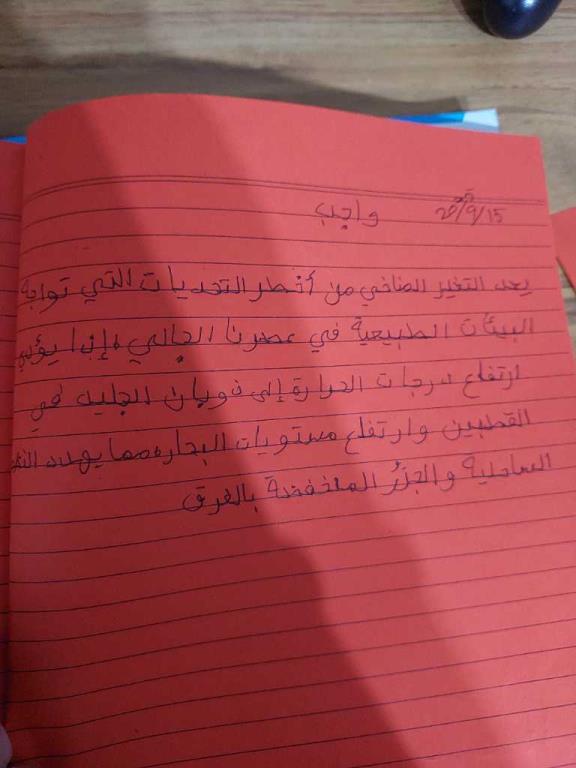 واجب 2025/9/15
يعد التغير المناخي من أخطر التحديات التي تواجه
البيئات الطبيعية في عصرنا الحالي، إذا يؤدي
ارتفاع درجات الحرارة إلى ذوبان الجليد في
القطبين وارتفاع مستويات البحار، مما يهدد
الساحلية والجزُر المنخفضة بالغرق